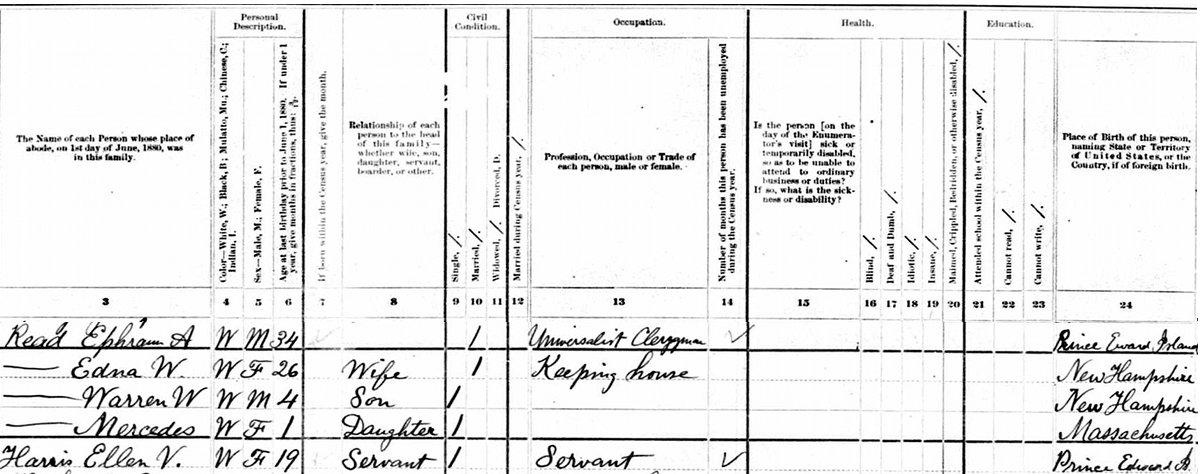 Personal Description.
Civil Condition.
Occupation.
Health.
Education.
The Name of each Person whose place of abode, on 1st day of June, 1880, was in this family.
Color—White, W.; Black, B.; Mulatto, Mu.; Chinese, C.; Indian, I.
Sex—Male, M.; Female, F.
Age at last birthday prior to June 1, 1880. If under 1 year, give months in fractions, thus: 3/12.
If born within the Census year, give the month.
Relationship of each person to the head of this family—whether wife, son, daughter, servant, boarder, or other.
Single, /.
Married, /.
Widowed, /. Divorced, D.
Married during Census year, /.
Profession, Occupation or Trade of each person, male or female.
Number of months this person has been unemployed during the Census year.
Is the person [on the day of the Enumerator's visit] sick or temporarily disabled, so as to be unable to attend to ordinary business or duties? If so, what is the sickness or disability?
Blind, /.
Deaf and Dumb, /.
Idiotic, /.
Insane, /.
Maimed, Crippled, Bedridden, or otherwise disabled, /.
Attended school within the Census year, /.
Cannot read, /.
Cannot write, /.
Place of Birth of this person, naming State or Territory of United States, or the Country, if of foreign birth.
3 4 5 6 7 8 9 10 11 12 13 14 15 16 17 18 19 20 21 22 23 24
Read Ephraim A W M 34 / Universalist Clergyman Prince Eward Island
— Edna W. W F 26 Wife / Keeping house New Hampshire
— Warren W W M 4 Son / New Hampshire
— Mercedes W F 1 Daughter / Massachusetts
Harris Ellen V. W F 19 Servant / Servant Prince Edward